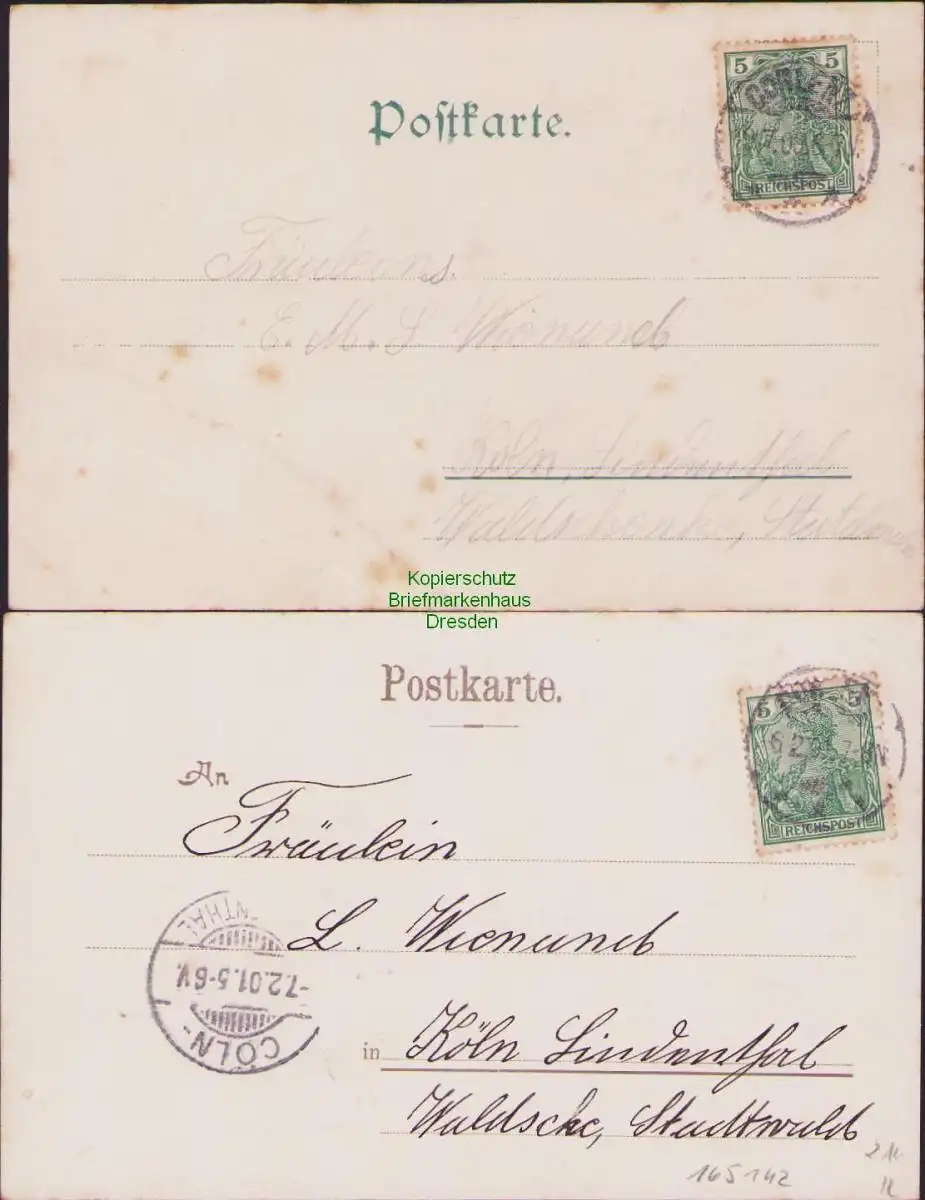 Postkarte.
5 5
COBLENZ
REICHSPOST
Fräuleins
E. M. L Wienand
Köln, Lindenthal
Waldschenke,
Kopierschutz
Briefmarkenhaus
Dresden
Postkarte.
5 5
6.2
REICHSPOST
An
Fräulein
L. Wienand
NTHAL
-7.2.01.5-6V.
CÖLN-
in Köln Lindenthal
Waldschc, Stadtwald
165142